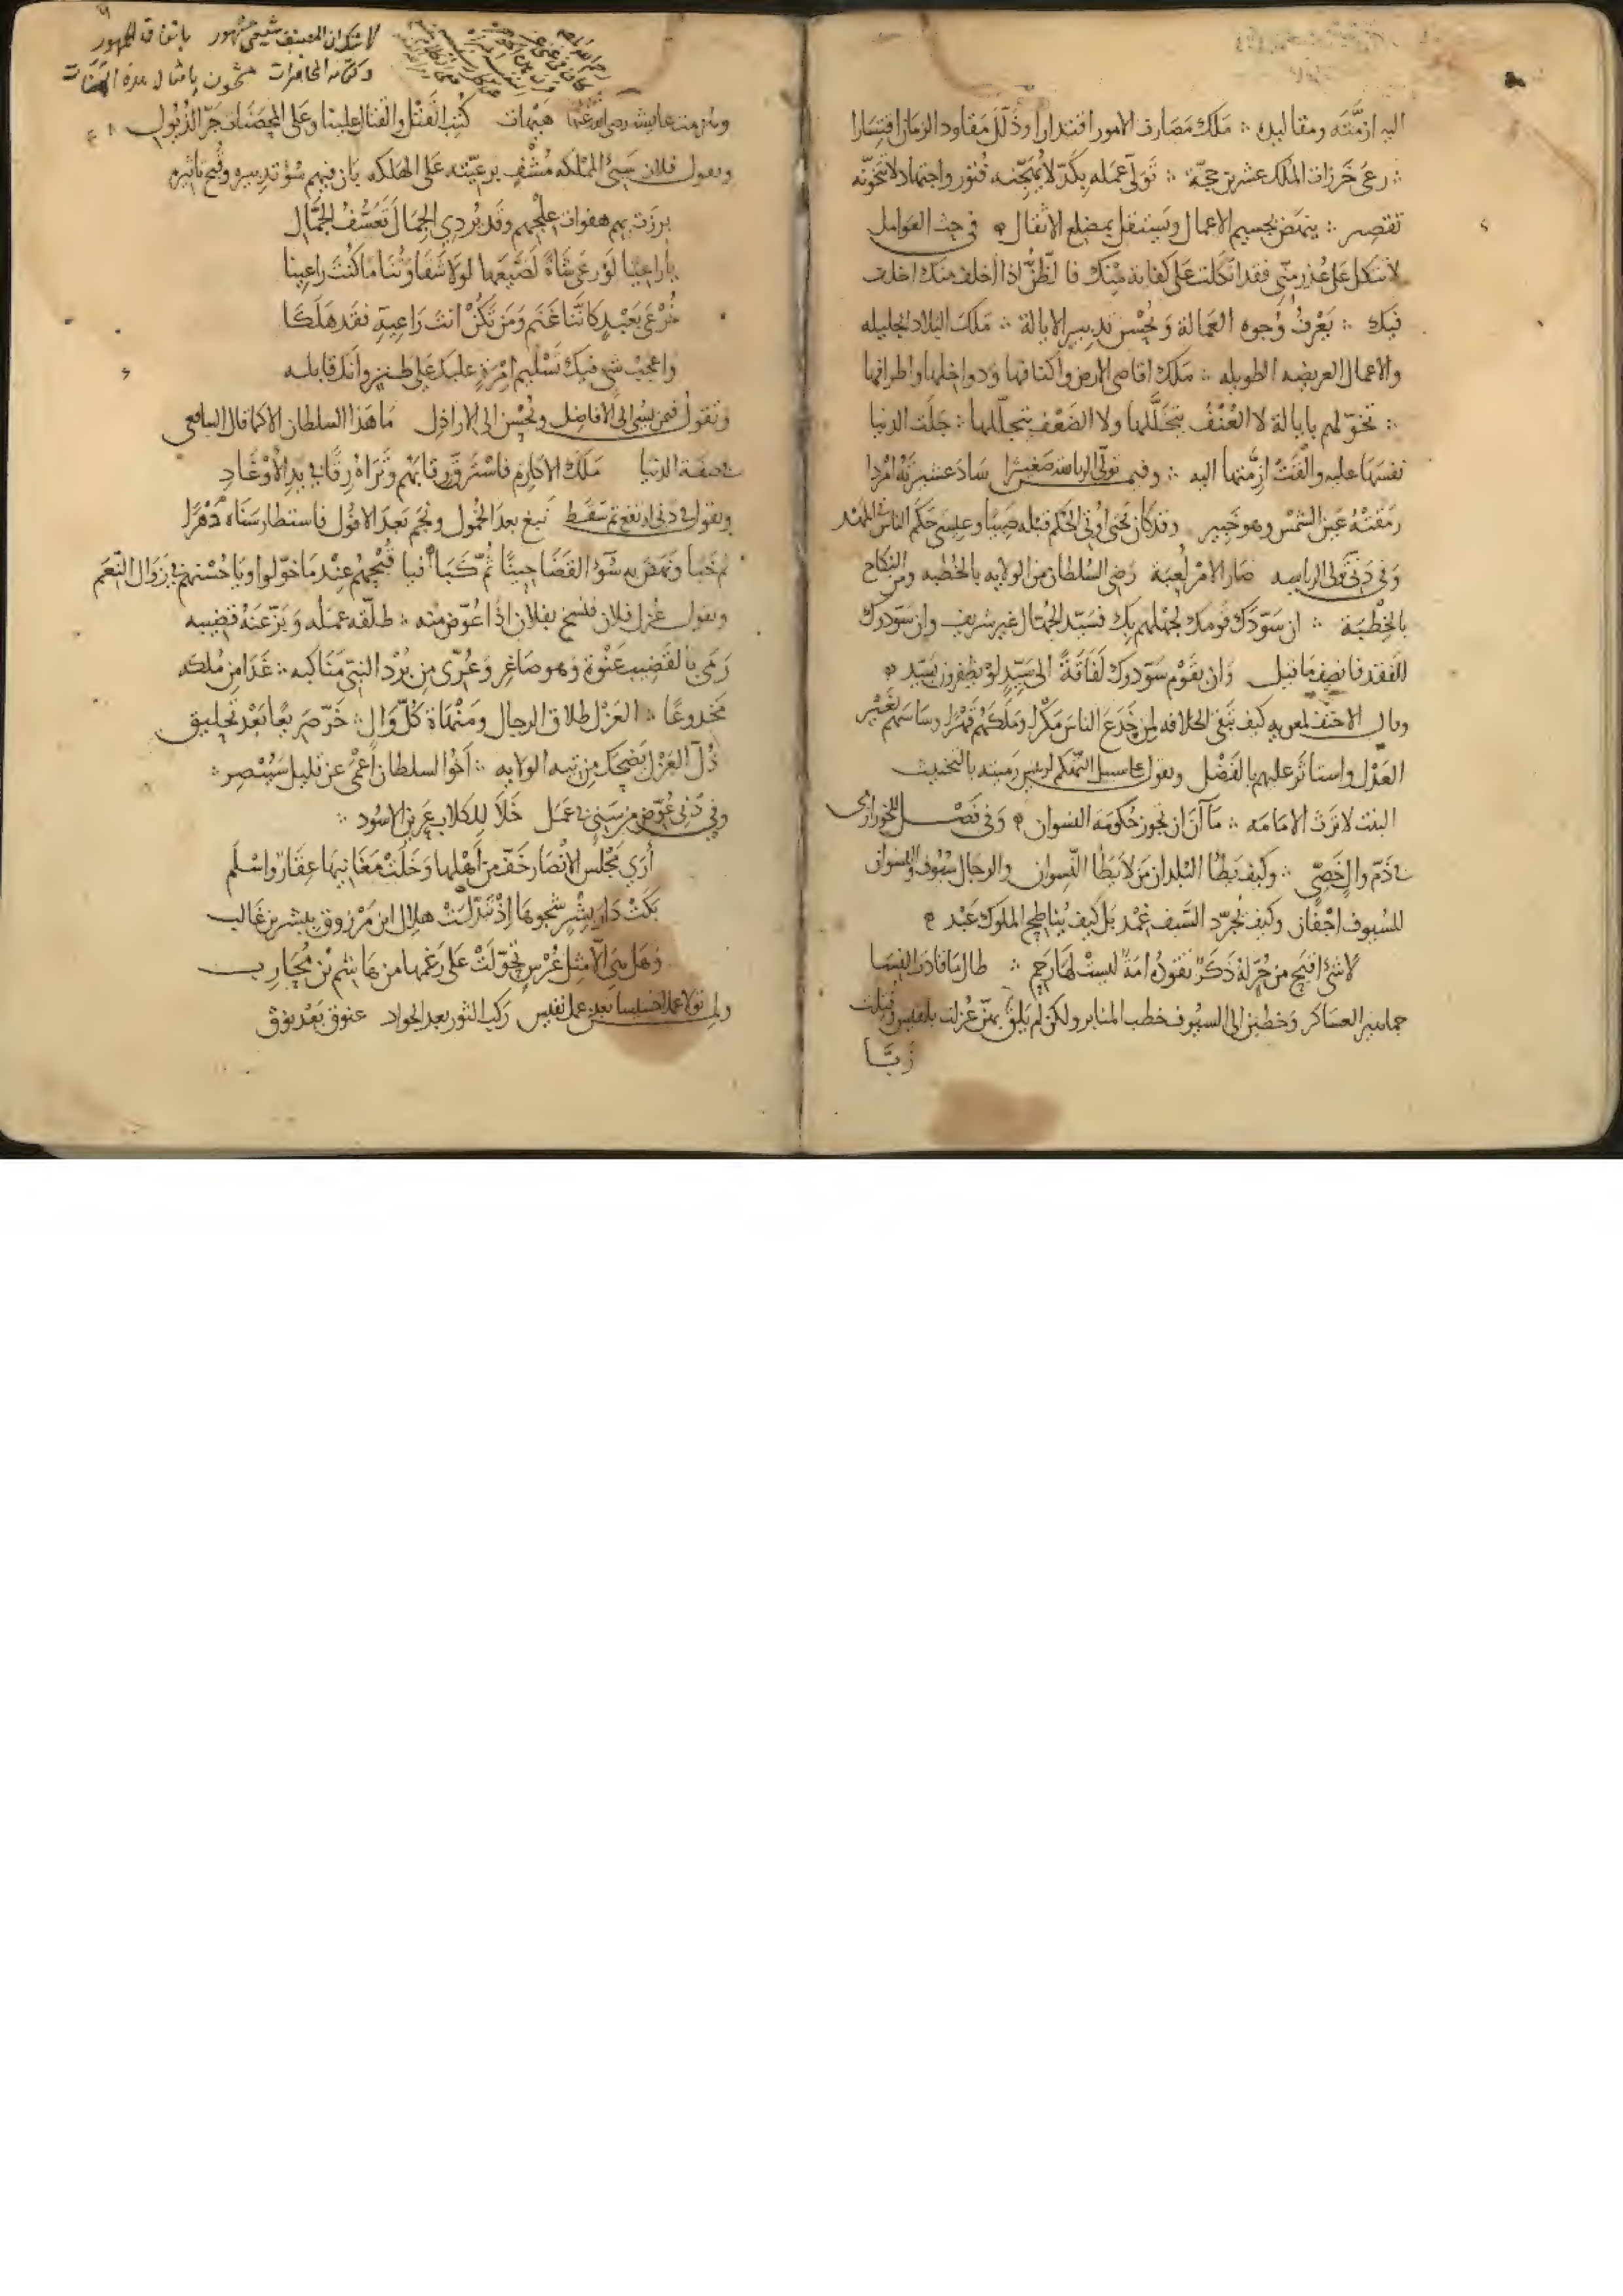 اليه ازمّته ومقاليده ∴ ملك مصارف الامور اقتدارا وذلّل مقاود الزمان اقتسارا
∴ رعى خرزات الملك عشرين حجّة ∴ تولّى عمله بكدّ لا يهجّنه فتور واجتهاد لا يتخوّنه
تقصير ∴ ينهض بجسيم الاعمال ويستقل بمضلع الاثقال في حث العوامل
لا تتكل على عذر منّي فقد اتكلت على كفاية منك فا لظنّ اذا اخلف منك اخلف
فيك ∴ يعرف وجوه العمالة ويحسن تدبير الايالة ∴ ملك البلاد الجليله
والاعمال العريضه الطويله ∴ ملك اقاصي الارض واكنافها ودواخلها واطرافها
∴ تخوّلهم بايالة لا العنف يتخلّلها ولا الضعف يتجلّلها ∴ جلت الدنيا
نفسها عليه والقت ازمّتها اليه ∴ وفيمن تولّى الرياسه صغيرا ساد عشيرته امردا
رمقته عين الشمس وهو خبير وقد كان يحيى اوتي الحكم قبله صبيّا وعيسى حكم الناس في المهد
وفي دني تولى الرياسه صار الامر لعبة رضي السلطان من الولايه بالخطبه ومن النكاح
بالخطبة ∴ ان سوّدك قومك لجهلهم بك فسيّد الجهّال غير شريف وان سوّدوك
للفقد فانصف ما قيل وان بقوم سوّدوك لفاقة الى سيّد لو يظفرون بسيّد
وقال الاحنف لمعويه كيف تبغى الخلافه لمن خدع الناس مكرا وملكهم قهرا وساسهم بغير
العدل واستاثر عليهم بالفضل وتقول على سبيل التهكم لرئيس رميته بالتخنيث
البنت لا ترث الامامه ∴ ما آن ان تجوز حكومة النسوان وفي فصل للخوارزمي
في ذمّ وال خصيّ ∴ وكيف يطأ البلدان من لا يطأ النسوان والرجال سيوف والنسوان
للسيوف اجفان وكيف يجرّد السيف غمد بل كيف يناطح الملوك عبد
لا شئ اقبح من فحولة ذكر تقوده امة ليست لها رحم ∴ طال ما قادت النسا
جماهير العساكر وخطبن الى السيوف خطب المنابر ولكن لم يلق بمن عزلت بلقيس وقتلت
زبّا
لا شك ان المصنف شيعي مشهور باتفاق الجمهور
وكتابه المحاضرات مشحون بامثال هذه الهنات
وتزمت عايشه رضى الله عنها هيهات كتب القتل والقتال علينا وعلى المحصنات جرّ الذيول
وتقول فلان سيئ الملكه مشف برعيّته على الهلكه بان فيهم سؤ تدبيره وقبح تاثيره
برزت بهم هفوات علجهم وقد يردي الجمال تعسّف الجمّال
يا راعيا لو رعى شاة لضيّعها لولا شقاوتنا ما كنت راعينا
ترعى بعيد كاننا غنم ومن تكن انت راعيه فقد هلكا
واعجب شي فيك تسليم امرة عليك على طنز وانك قابله
وتقول فيمن يسئ الى الافاضل ويحسن الى الاراذل ما هذا السلطان الا كما قال الشافعي
في صفة الدنيا ملك الاكارم فاسترقّ رقابهم وتراه رقّا في يد الاوغاد
وتقول في دني ارتفع ثم سقط نبغ بعد الخمول ونجم بعد الافول فاستطار سناه دهرا
ثم خبا ونهض به سوء القضا حينا ثم كبا فيا قبحهم عند ما خوّلوا ويا حسنهم في زوال النعم
وتقول عزل فلان فنسخ بفلان اذا عوّض منه ∴ طلّقه عمله وبزّ عنه قضيبه
رمى بالقضيب عنوة وهو صاغر وعرّى من برد النبيّ مناكبه ∴ غدا من ملكه
مخدوعا ∴ العزل طلاق الرجال ومنهاة كلّ وال ∴ خرّ صريعا بعد تحليق
ذلّ العزل يضحك من تيه الولايه ∴ اخو السلطان اعمى عن قليل سيبصر ∴
وفي دني عوّض من سني في عمل خلا للكلاب عرين الاسود ∴
أرى مجلس الانصار خفّ من اهلها وخلت مغانيها عفار واسلم
بكت دار بشر شجوها اذ تبدّلت هلال ابن مرزوق ببشر بن غالب
وهل هي الا مثل عرس تحوّلت على رغمها من هاشم في محارب
ولمن تولا عملا خسيسا بعد عمل نفيس ركب الثور بعد الجواد عنوق بعد نوق